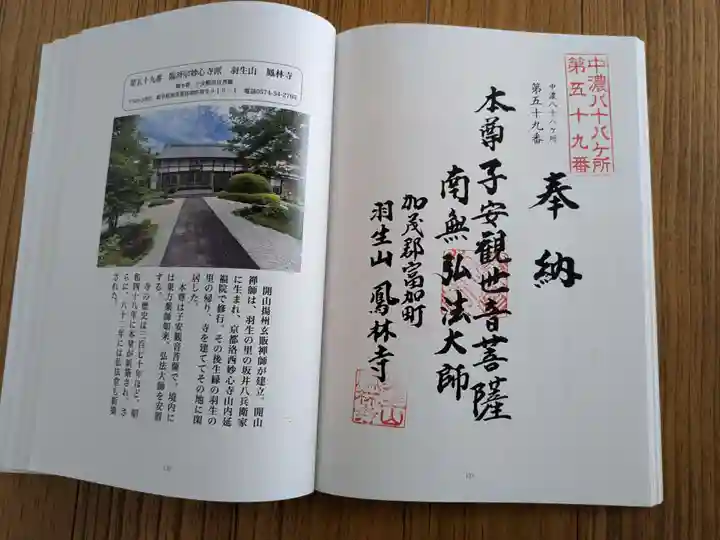 第五十九番 臨済宗妙心寺派 羽生山 鳳林寺
電話0574-54-2792
開山揚州玄販禅師が建立。開山
禅師は、羽生の里の坂井八兵衛家
に生まれ、京都洛西妙心寺山内延
福院で修行。その後生縁の羽生の
里の帰り、寺を建ててその地に閑
居した。
本尊は子安観音菩薩で、境内に
は東方薬師如来、弘法大師を安置
する。
寺の歴史は三百七十年ほど。昭
和四十八年に本堂が新築され、さ
らに、八十二年には弘法堂も新築
された。
中濃八十八ヶ所
第五十九番
中濃八十八ケ所
第五十九番
奉納
本尊子安観世音菩薩
南無弘法大師
加茂郡富加町
羽生山 鳳林寺